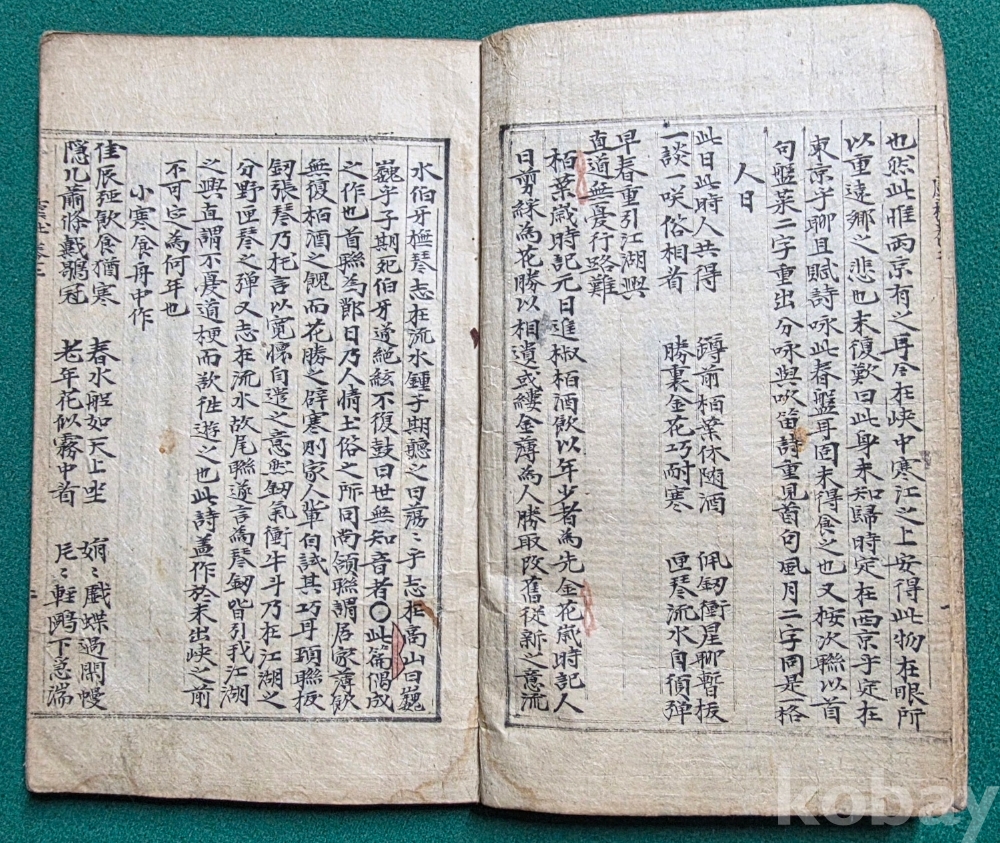 也然此惟兩京有之再今在峽中寒江之上安得此物在眼所
以重遠鄕之悲也末復歎曰此身未知歸時定在西京乎定在
東京乎聊且賦詩咏此春盤耳同未得食之也又按次聯以首
句盤菜二字重出分咏與吹笛詩重見首句風月二字同是格
人日
此日此時人共得 鐏前栢葉休随酒 佩釰衝星聊暫板
一談一咲俗相看 勝裏金花巧耐寒 匣琴流水自須弹
早春重引江湖興
直道無憂行路難
栢葉歲時記元日進椒栢酒飲以年少者為先金花歲時記人
日剪綵為花勝以相遺或縷金薄為人勝取改舊從新之意流
水伯牙撫琴志在流水鍾子期聽之曰蕩〻乎志在高山曰巍
巍乎子期死伯牙遂絶絃不復鼓曰世無知音者〇此篇偶成
之作也首聯為節日乃人情土俗之所同尚頷聯謂居家薄飲
無復栢酒之餽而花勝之辟寒則家人軰自試其巧耳頸聯板
釰張琴乃托言以寛懷自遣之意然釰氣衝牛斗乃在江湖之
分野匣琴之弹又志在流水故尾聯遂言為琴釰皆引我江湖
之興直謂不憂道梗而欲徃遊之也此詩盖作於未出峽之前
不可定為何年也
小寒食舟中作
佳辰强飲食猶寒 春水船如天上坐 娟〻戲蝶過閑幔
隠几蕭條戴鶡冠 老年花似霧中看 片〻軽鷗下急湍
kobay